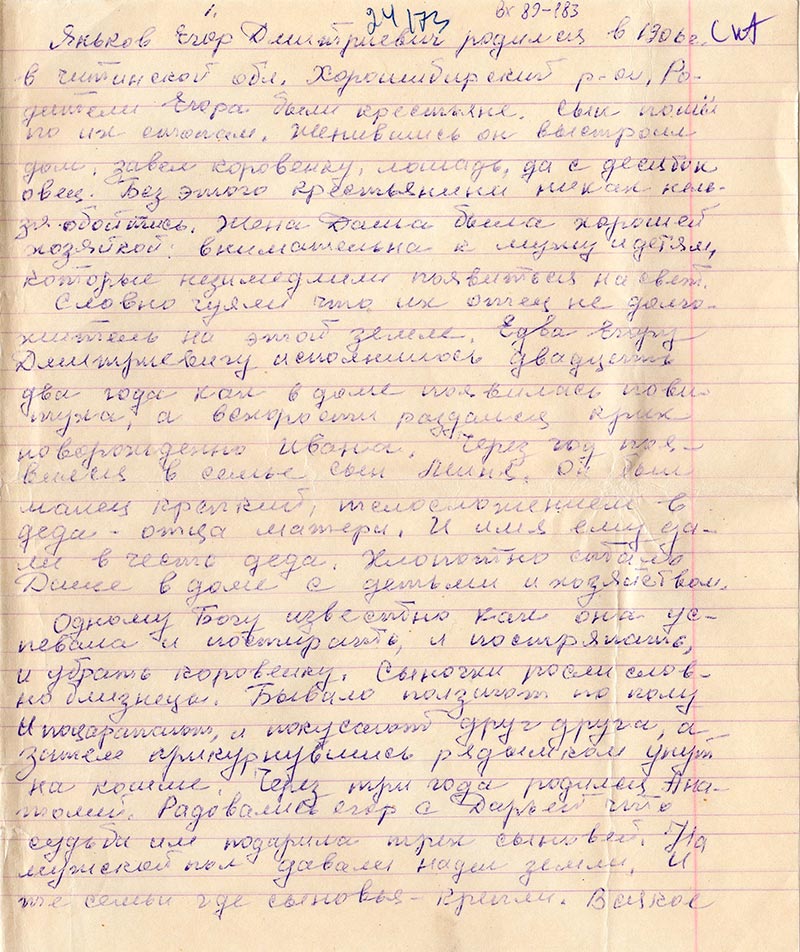 1.
24/73
Вх 89-183
Яньков Егор Дмитриевич родился в 1906 г.
в читинской обл. Хорошибирский р-он. Ро-
дители Егора были крестьяне. Сын пошёл
по их стопам. Женившись он выстроил
дом, завел коровенку, лошадь, да с десяток
овец. Без этого крестьянину никак нель-
зя обойтись. Жена Даша была хорошей
хозяйкой: внимательна к мужу и детям,
которые незимедлили появиться на свет.
Словно чуяли что их отец не долго-
житель на этой земле. Едва Егору
Дмитриевичу исполнилось двадцать
два года как в доме появилась пови-
туха, а вскорости раздался крик
новорожденно Ивана. Через год поя-
вился в семье сын . Он был
малец крепкий, телосложением в
деда - отца матери. И имя ему да-
ли в честь деда. Хлопотно стало
Даше в доме с детьми и хозяйством.
Одному Богу известно как она ус-
певала и постирать, и постряпать,
и убрать коровенку. Сыночки росли слов-
но близнецы. Бывало ползают по полу
и поцарапают, и покусают друг друга, а
затем прикурнувшись рядышком уснут
на кошме. Через три года родился Ана-
толий. Радовались Егор с Дарьей что
судьба им подарила трех сыновей. На
мужской пол давали надел земли. И
те семьи где сыновья - крепли. Всякое